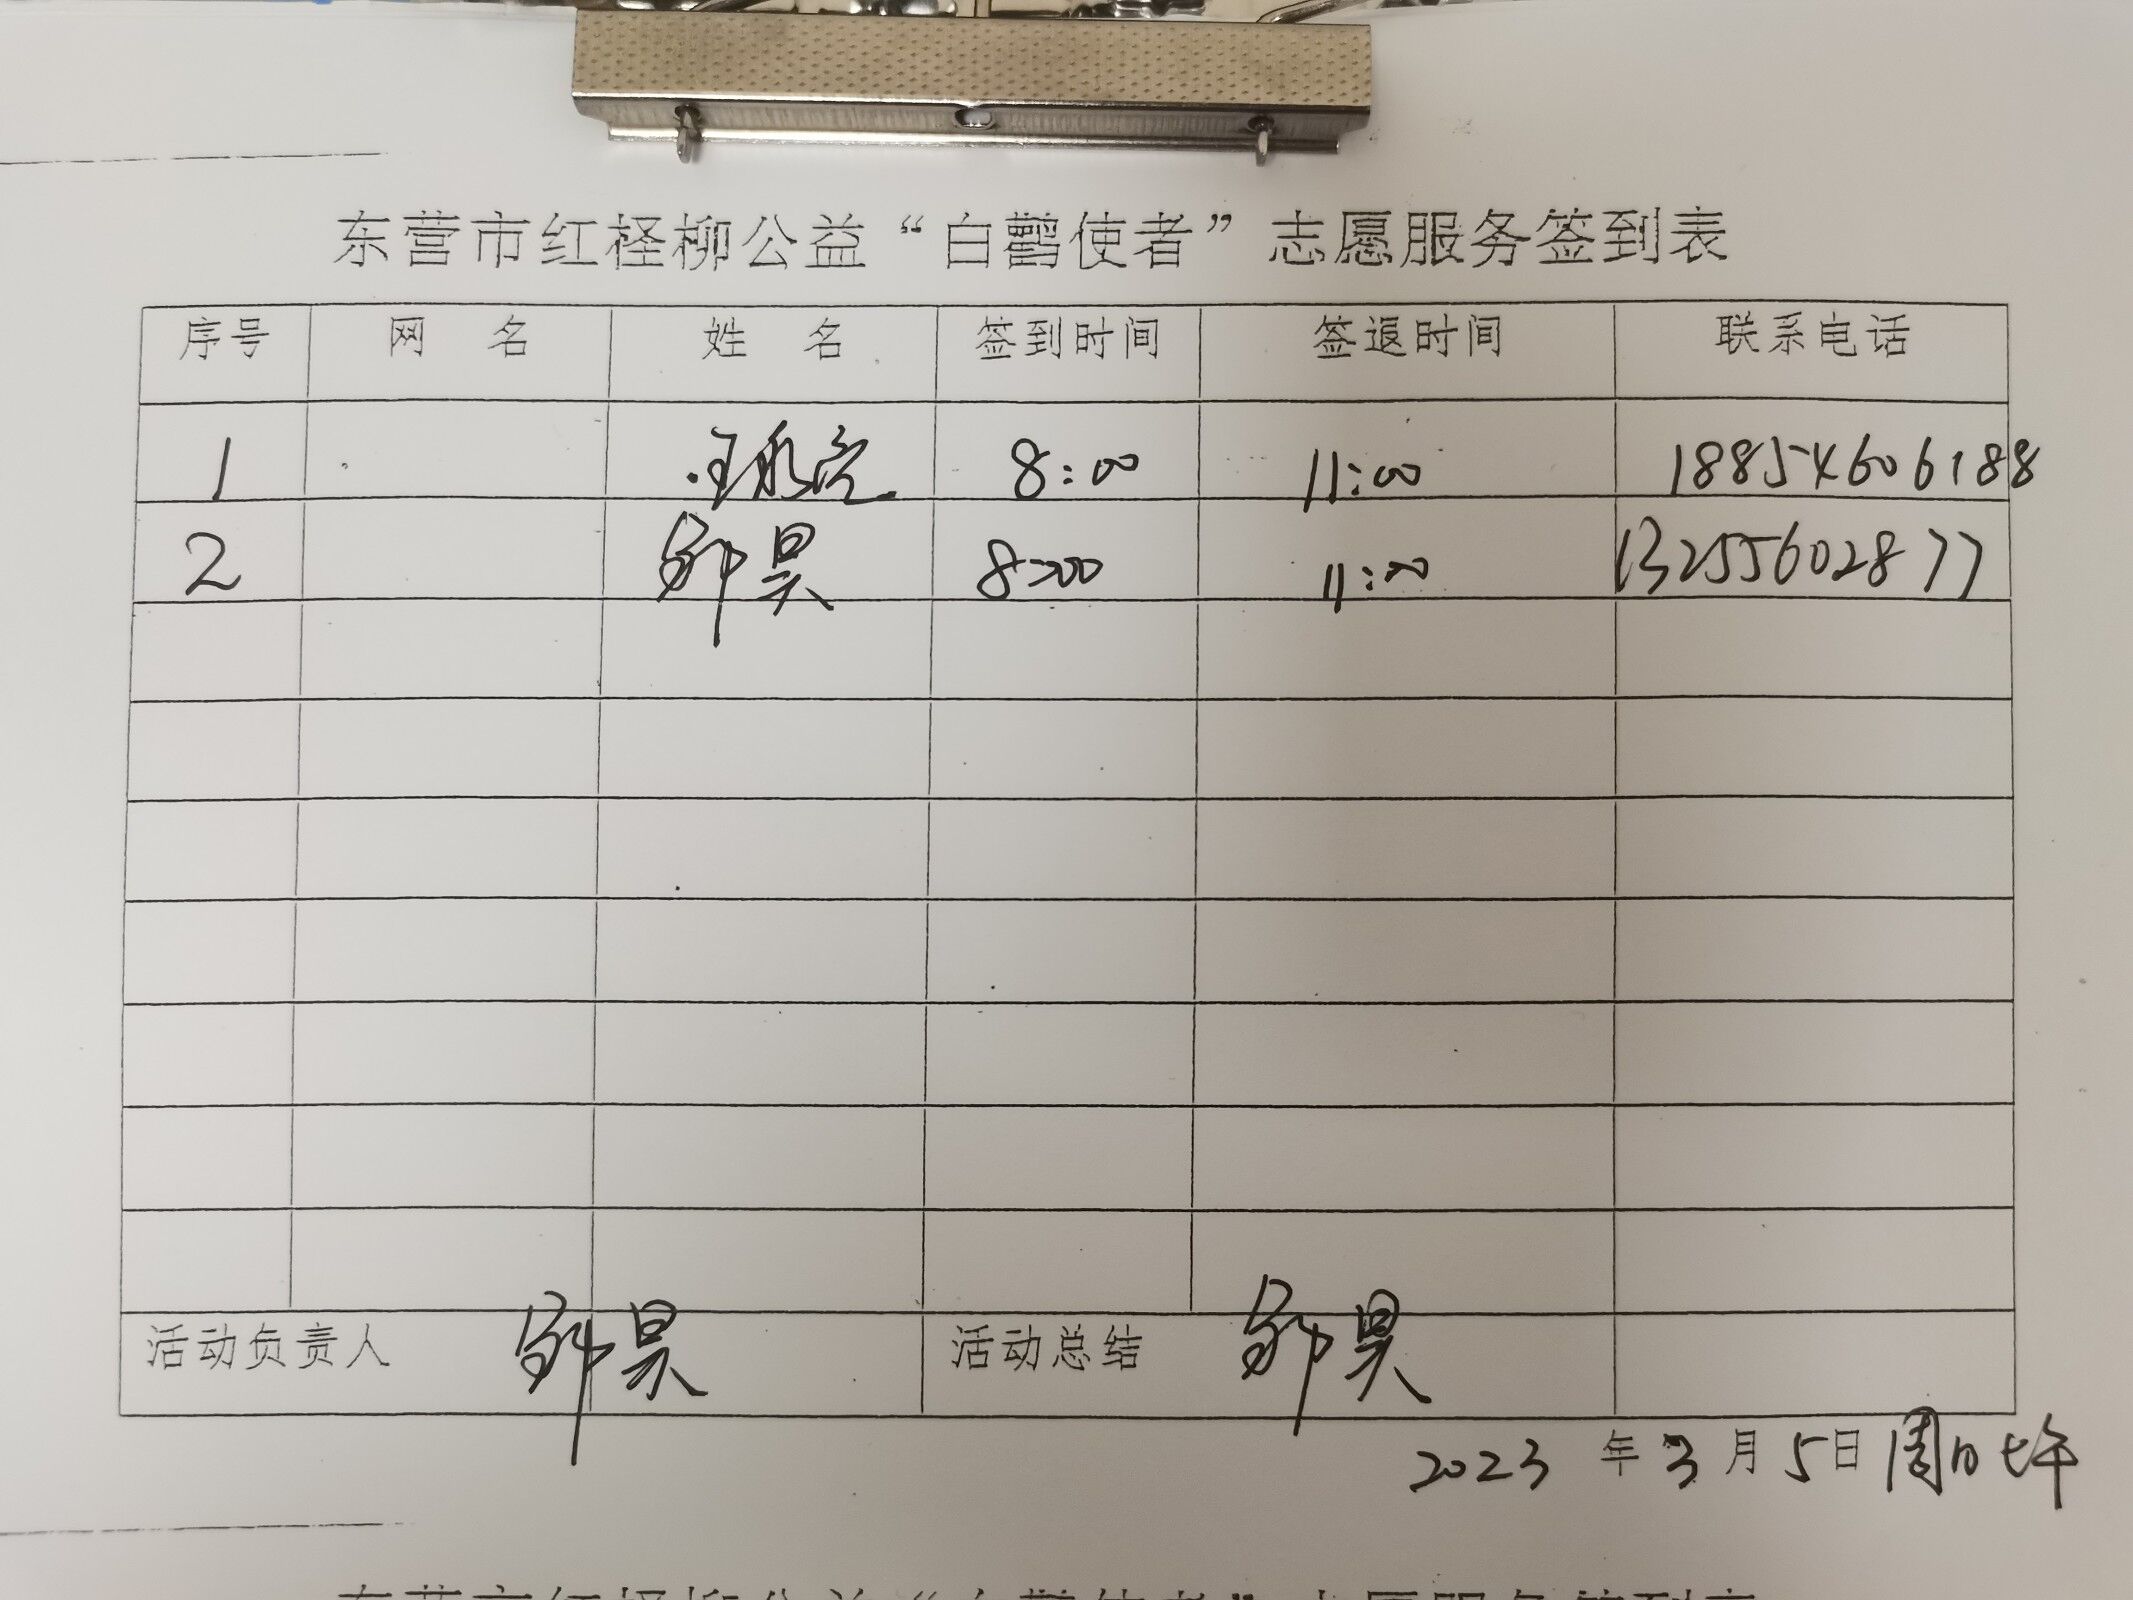 东营市红柽柳公益“白鹳使者”志愿服务签到表
序号 网 名 姓 名 签到时间 签退时间 联系电话
1 王永亮 8:00 11:00 18854606188
2 邹昊 8:00 11:00 13255602877
活动负责人 邹昊 活动总结 邹昊
2023 年 3 月 5 日 周日上午
东营市红柽柳公益“白鹳使者”志愿服务签到表